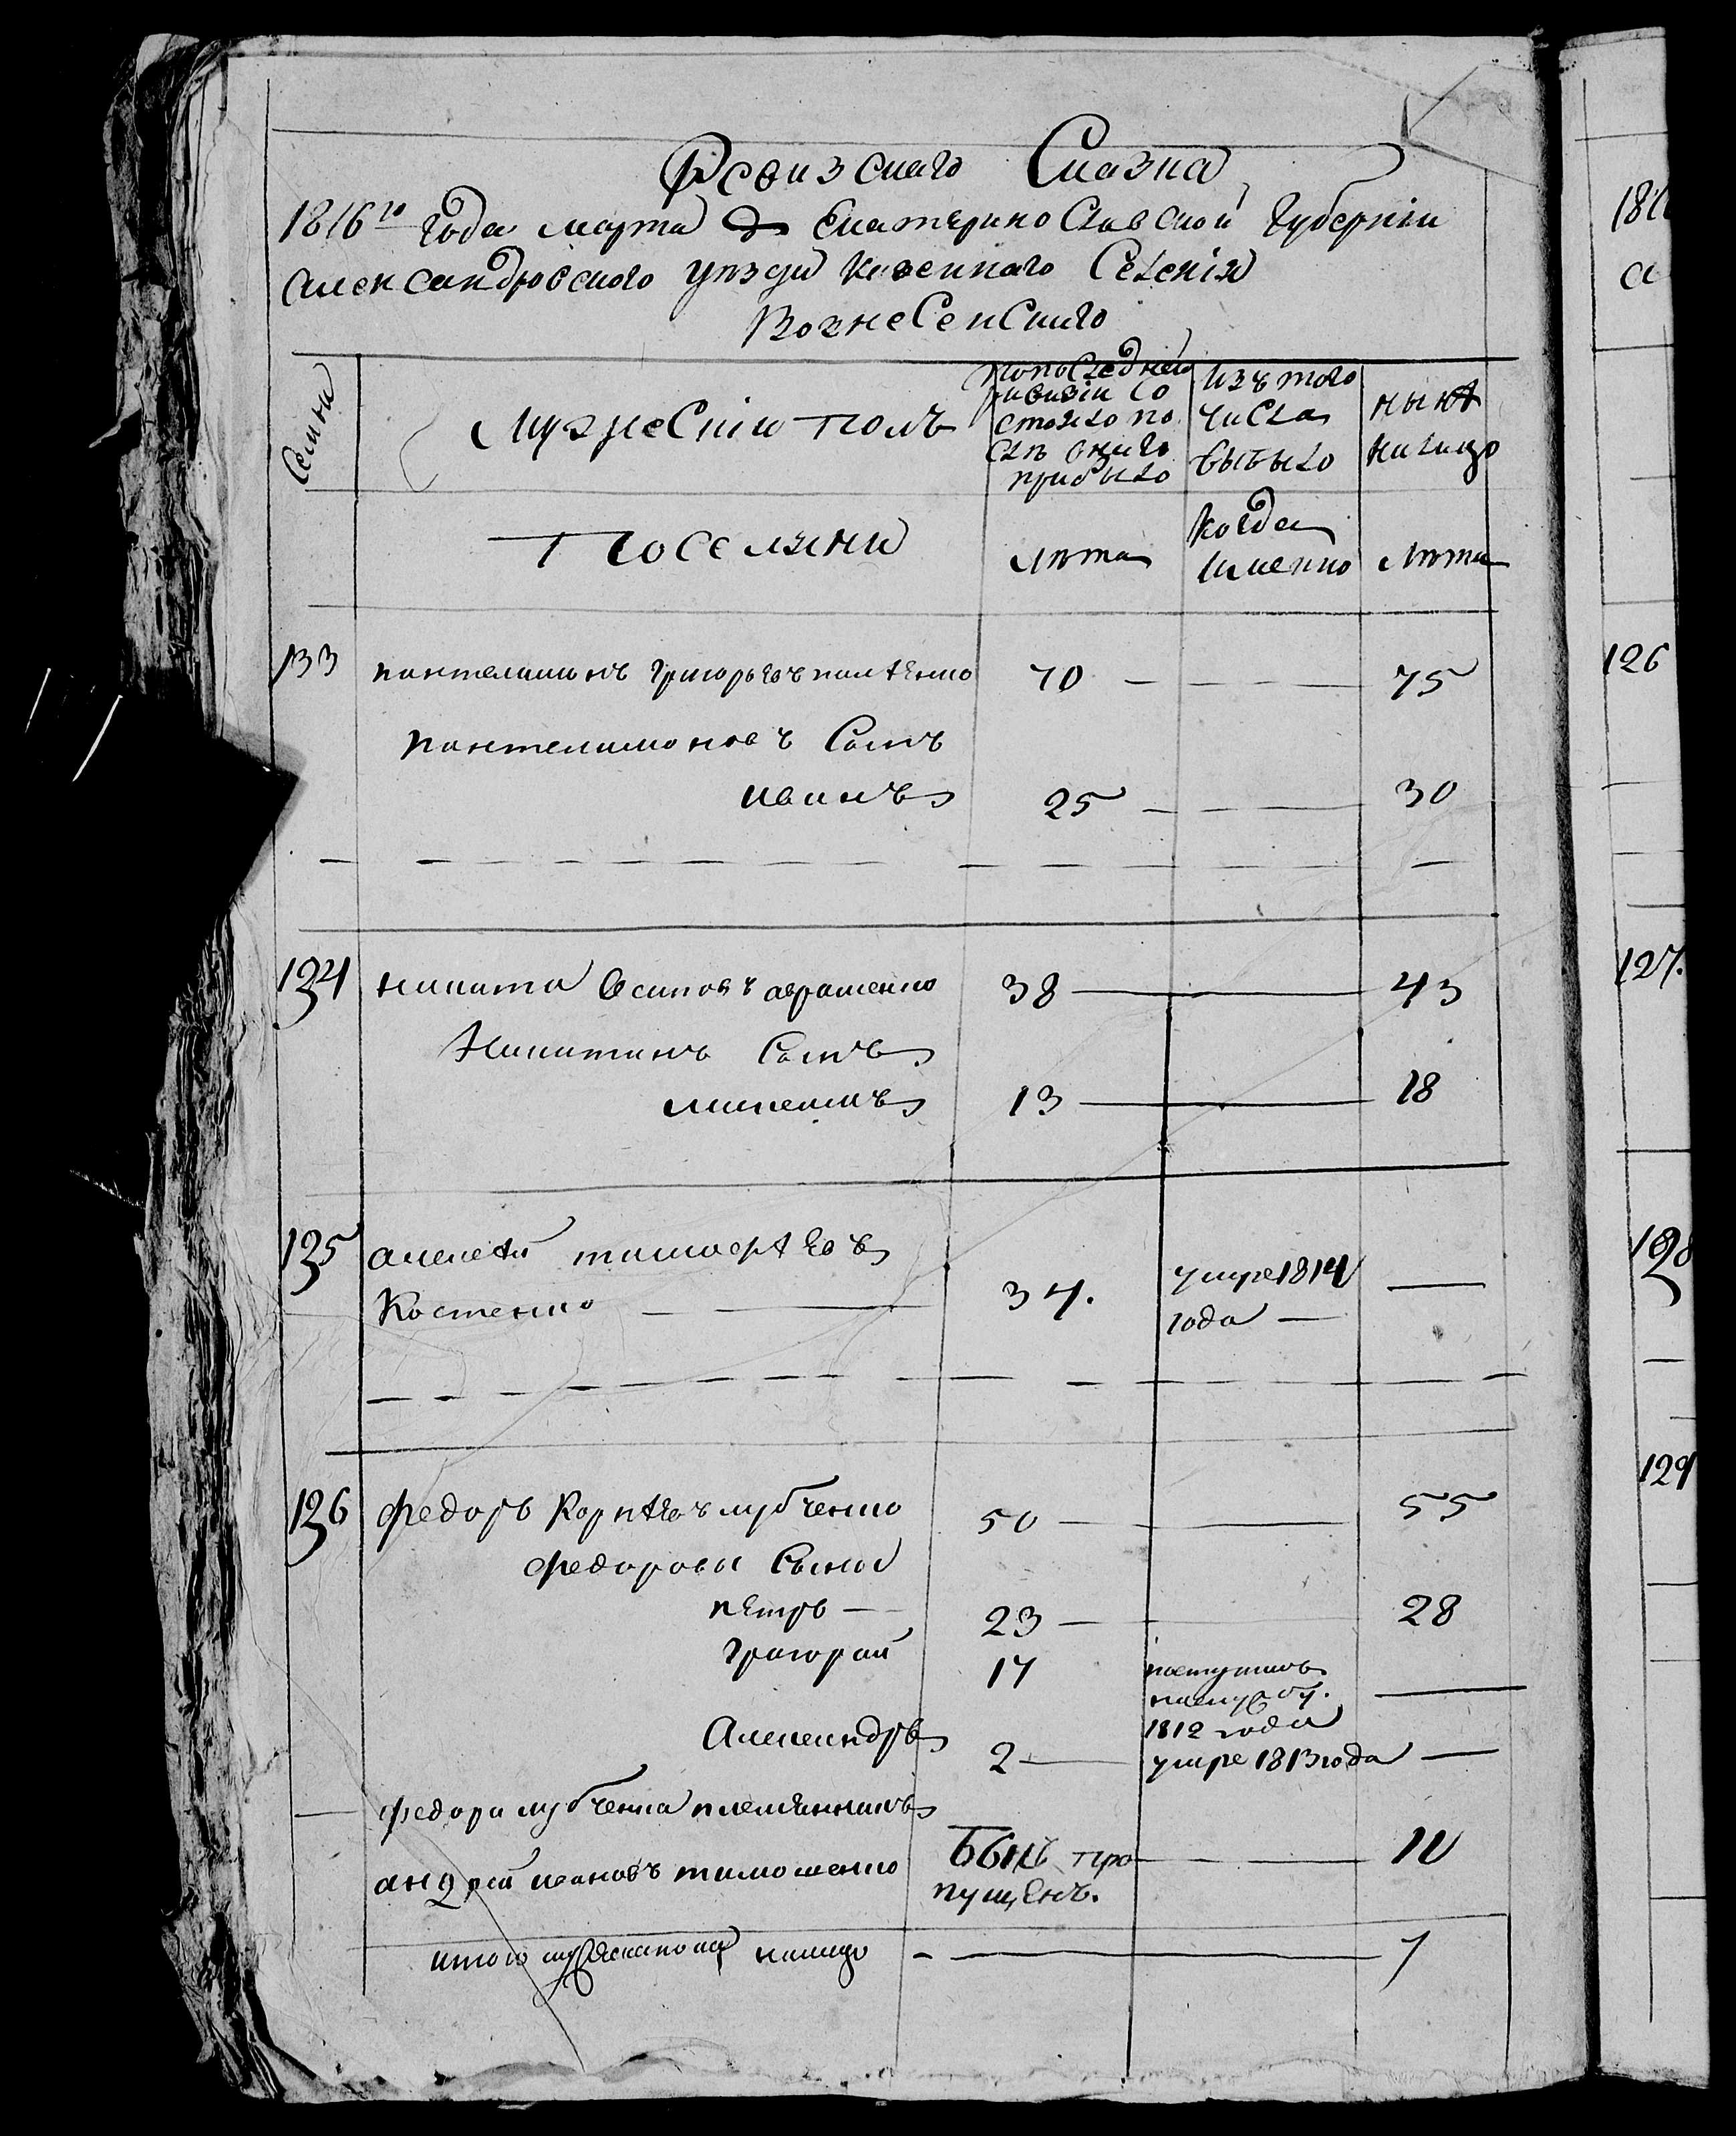 Ревизская Сказка
1816го года марта дня Екатерино Славской Губернiи
Александровского уезда Казенного Селенiя
Вознесенского
Семьи
Мужескiй полъ
По последней
ревизiи со
стояло и по
слѣ оной
прибыло
Изъ того
числа
выбыло
ныне
налицо
Поселяни
лѣта
когда
именно
лѣта
133 пантелимонъ Григорьевъ 70 — — — 75
пантелимоновъ Сынъ
иванъ 25 — — — 30
134 никита Осиповъ авраменко 38 — — 43
Никитинъ Сынъ
13 — — 18
135 алексѣй тимофѣевъ
Костенко — — 34. умре 1814 года — —
136 федоръ Корнѣевъ лубченко 50 — — 55
федоровы Сыновья
петръ — 23 — — 28
Григорий 17 поступилъ
на службу.
1812 года —
Александръ 2 — умре 1813 года —
— федора лубченка племянникъ
андрей ивановъ тимошенко Былъ про
пущенъ. — — 10
итого мужеска пола налицо — — 7
181
а
126
127.
128
129